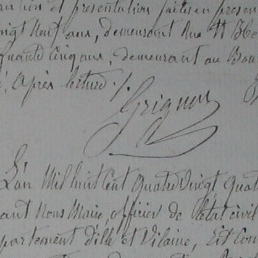 et présentation faites en présence
vingt neuf ans, demeurant Rue St
quante cinq ans, demeurant au Bou
, Après lecture ./.
Grignon
L'an Mil huit Cent Quatre Vingt Quat
ant Nous Maire, officier de l'état civil
partement d'Ille et Vilaine, Est Com